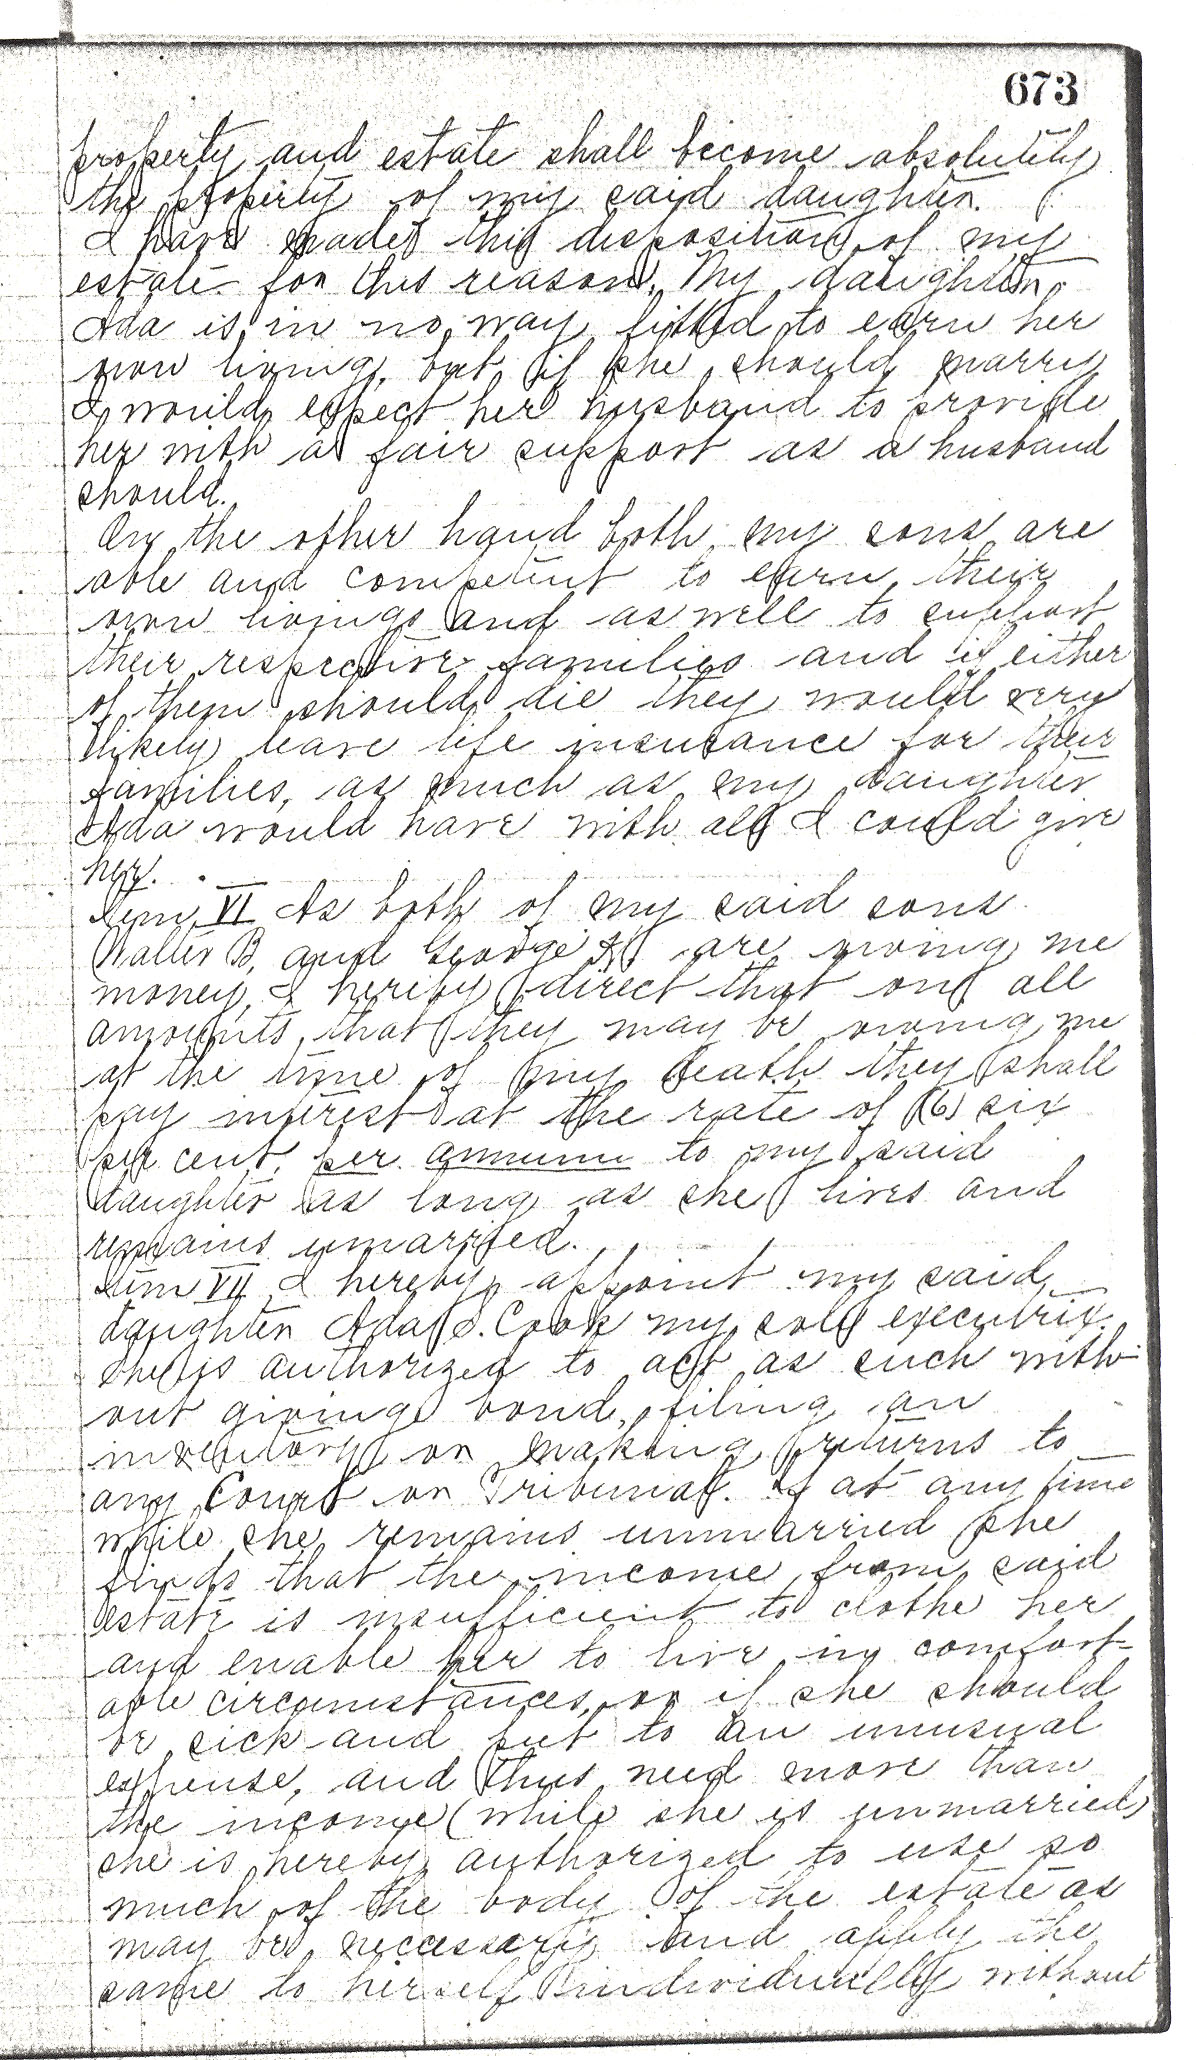 673
property and estate shall become absolutely
the property of my said daughter.
I have made this disposition of my
estate for this reason. My daughter
Ada is in no way fitted to earn her
own living, but if she should marry
I would expect her husband to provide
her with a fair support as a husband
should.
On the other hand both my sons are
able and competent to earn their
own livings and as well to support
their respective families and if either
of them should die they would very
likely leave life insurance for their
families, as much as my daughter
Ada would have with all I could give
her.
Item VI As both of my said sons
Walter B. and George A. are owing me
money, I hereby direct that on all
amounts that they may be owing me
at the time of my death they shall
pay interest at the rate of (6) six
per cent. per annum to my said
daughter as long as she lives and
remains unmarried.
Item VII I hereby appoint my said
daughter Ada S. Cook my sole executrix.
She is authorized to act as such with-
out giving bond, filing an
inventory or making returns to
any Court or Tribunal. If at any time
while she remains unmarried she
finds that the income from said
estate is insufficient to clothe her
and enable her to live in comfort-
able circumstances, or if she should
be sick and put to an unusual
expense, and thus need more than
the income (while she is unmarried)
she is hereby authorized to use so
much of the body of the estate as
may be necessary and apply the
same to herself individually without